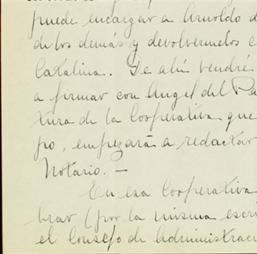 puede encargar a Arnoldo d
de los demás y devolvernelos c
Catalina.. De ahí vendrés
a firmar con Angel del Pa
tura de la Cooperativa que
po, empezará a redactar
Notario. —
En esa Cooperativa
brar (por la misma escri
el Consejo de Administraci